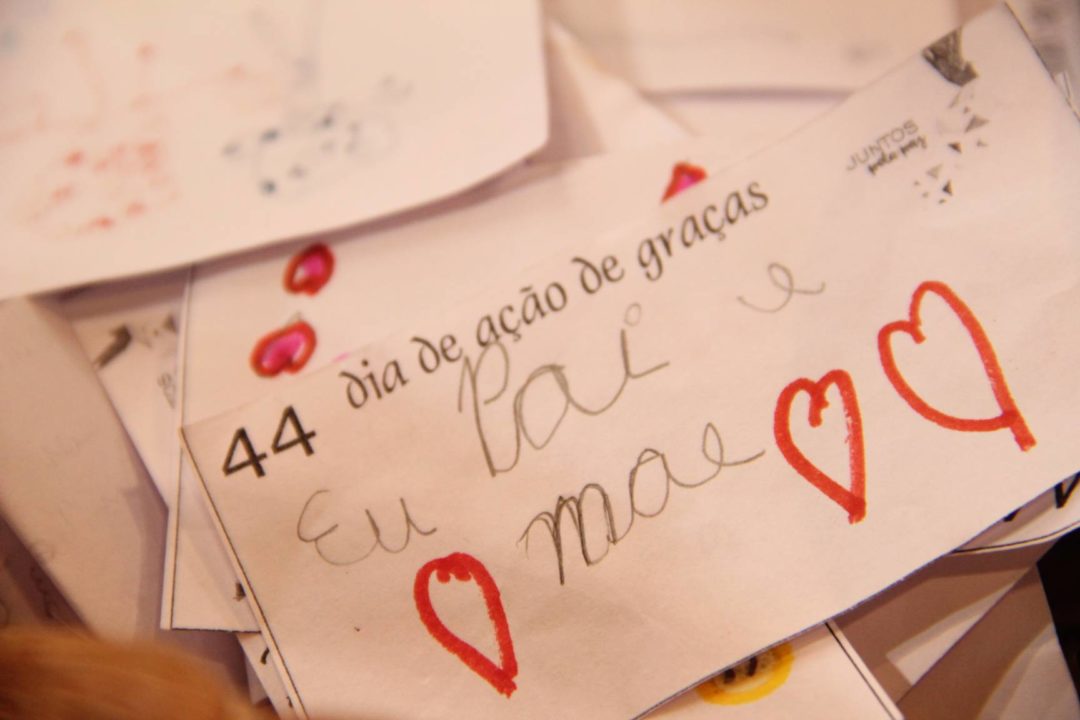 JUNTOS
pela paz
44 dia de ação de graças
Pai e
Eu mae